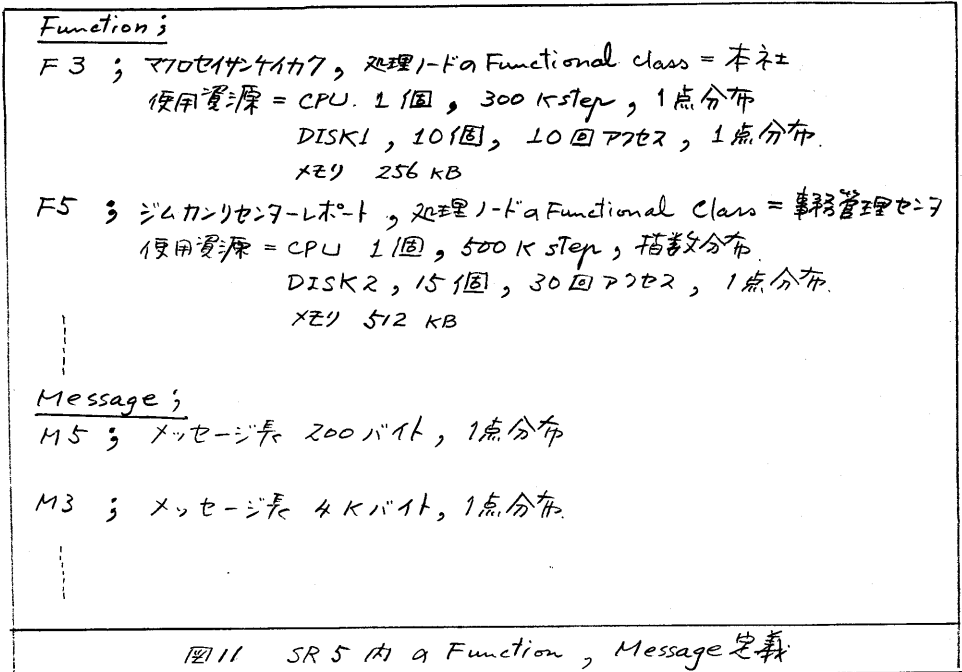 Function ;
F3 ; マクロセイサンケイカク, 処理ノードの Functional class = 本社
使用資源 = CPU. 1個, 300 K step, 1点分布
DISK1, 10個, 10回アクセス, 1点分布.
メモリ 256 KB
F5 ; ジムカンリセンターレポート, 処理ノードの Functional Class = 事務管理センタ
使用資源 = CPU 1個, 500 K step, 指数分布.
DISK2, 15個, 30回アクセス, 1点分布.
メモリ 512 KB
Message ;
M5 ; メッセージ長 200バイト, 1点分布
M3 ; メッセージ長 4Kバイト, 1点分布.
図11 SR5内の Function, Message定義